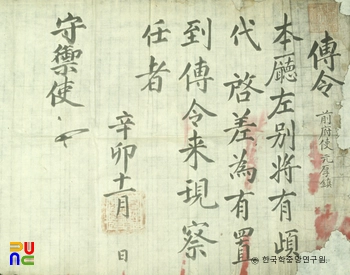 傳令
前府使
本廳左別將有頉
代 啓差為有置
到傳令来現察
任者
辛卯十一月 日
守禦使
ⓒ 한국학중앙연구원